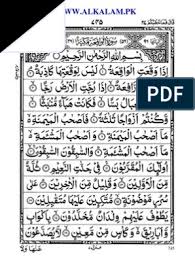 WWW.ALKALAM.PK
٧٣٥
بِسْمِ اللّٰهِ الرَّحْمٰنِ الرَّحِيْمِ
اِذَا وَقَعَتِ الْوَاقِعَةُ لَيْسَ لِوَقْعَتِهَا كَاذِبَةٌ
خَافِضَةٌ رَّافِعَةٌ اِذَا رُجَّتِ الْاَرْضُ رَجًّا وَّبُسَّتِ
الْجِبَالُ بَسًّا فَكَانَتْ هَبَآءً مُّنْۢبَثًّا وَّكُنْتُمْ
اَزْوَاجًا ثَلٰثَةً فَاَصْحٰبُ الْمَيْمَنَةِ
مَآ اَصْحٰبُ الْمَيْمَنَةِ وَاَصْحٰبُ الْمَشْـَٔمَةِ
مَآ اَصْحٰبُ الْمَشْـَٔمَةِ وَالسّٰبِقُوْنَ السّٰبِقُوْنَ
اُولٰٓئِكَ الْمُقَرَّبُوْنَ فِيْ جَنّٰتِ النَّعِيْمِ ثُلَّةٌ
مِّنَ الْاَوَّلِيْنَ وَقَلِيْلٌ مِّنَ الْاٰخِرِيْنَ عَلٰى سُرُرٍ
مَّوْضُوْنَةٍ مُّتَّكِـِٕيْنَ عَلَيْهَا مُتَقٰبِلِيْنَ
يَطُوْفُ عَلَيْهِمْ وِلْدَانٌ مُّخَلَّدُوْنَ بِاَكْوَابٍ
وَّاَبَارِيْقَ وَكَاْسٍ مِّنْ مَّعِيْنٍ لَّا يُصَدَّعُوْنَ
عَنْهَا وَلَا
PDF